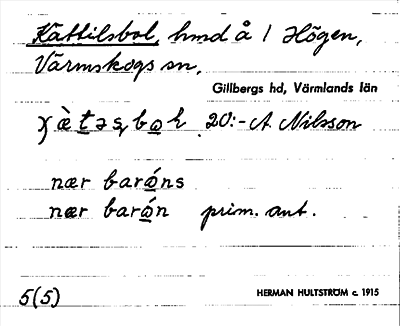 Kattilsbol, hmd å 1 Högen,
Värmskogs sn,
Gillbergs hd, Värmlands län
20:- A Nilsson
nær barǿns
nær barǿn prim. ant.
5(5)
HERMAN HULTSTRÖM c. 1915